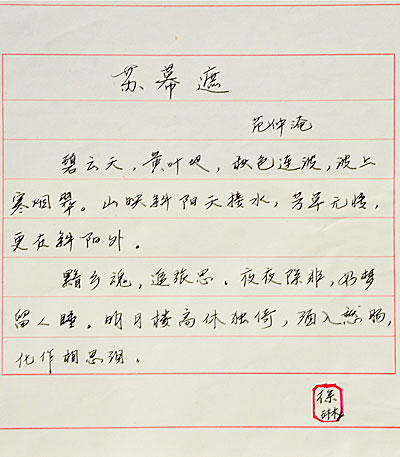 苏幕遮
范仲淹
碧云天，黄叶地，秋色连波，波上
寒烟翠。山映斜阳天接水，芳草无情，
更在斜阳外。
黯乡魂，追旅思。夜夜除非，好梦
留人睡。明月楼高休独倚，酒入愁肠，
化作相思泪。
徐
琳